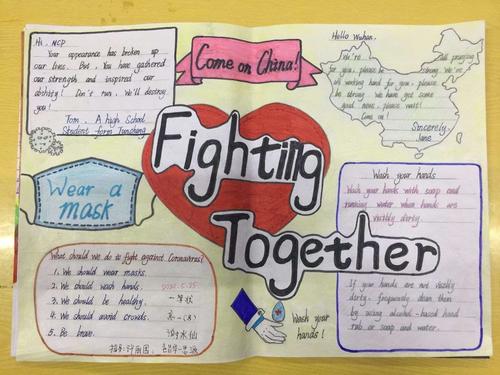 Hi, NCP
Your appearance has broken up
our lives. But, You have gathered
our strength and inspired our
ability! Don't run, We'll destroy
you!
Tom. A high School
Student form Tunchang
Come on China!
Hello Wuhan,
We're all praying
for you, please be strong We're
all working hand for you, please
be strong We have got some
good news, please wait!
Come on!
Sincerely,
Jane
Fighting
Together
Wear a
mask
Wash your hands
Wash your hands with soap and
running water when hands are
visibly dirty.
If your hands are not visibly
dirty, frequently clean them
by using alcohol-based hand
rub or soap and water.
What should we do to fight against Coronavirus!
1. We should wear masks.
2. We should wash hands.
3. We should be healthy.
4. We should avoid crowds.
5. Be brave.
一等奖
Wash your
hands!